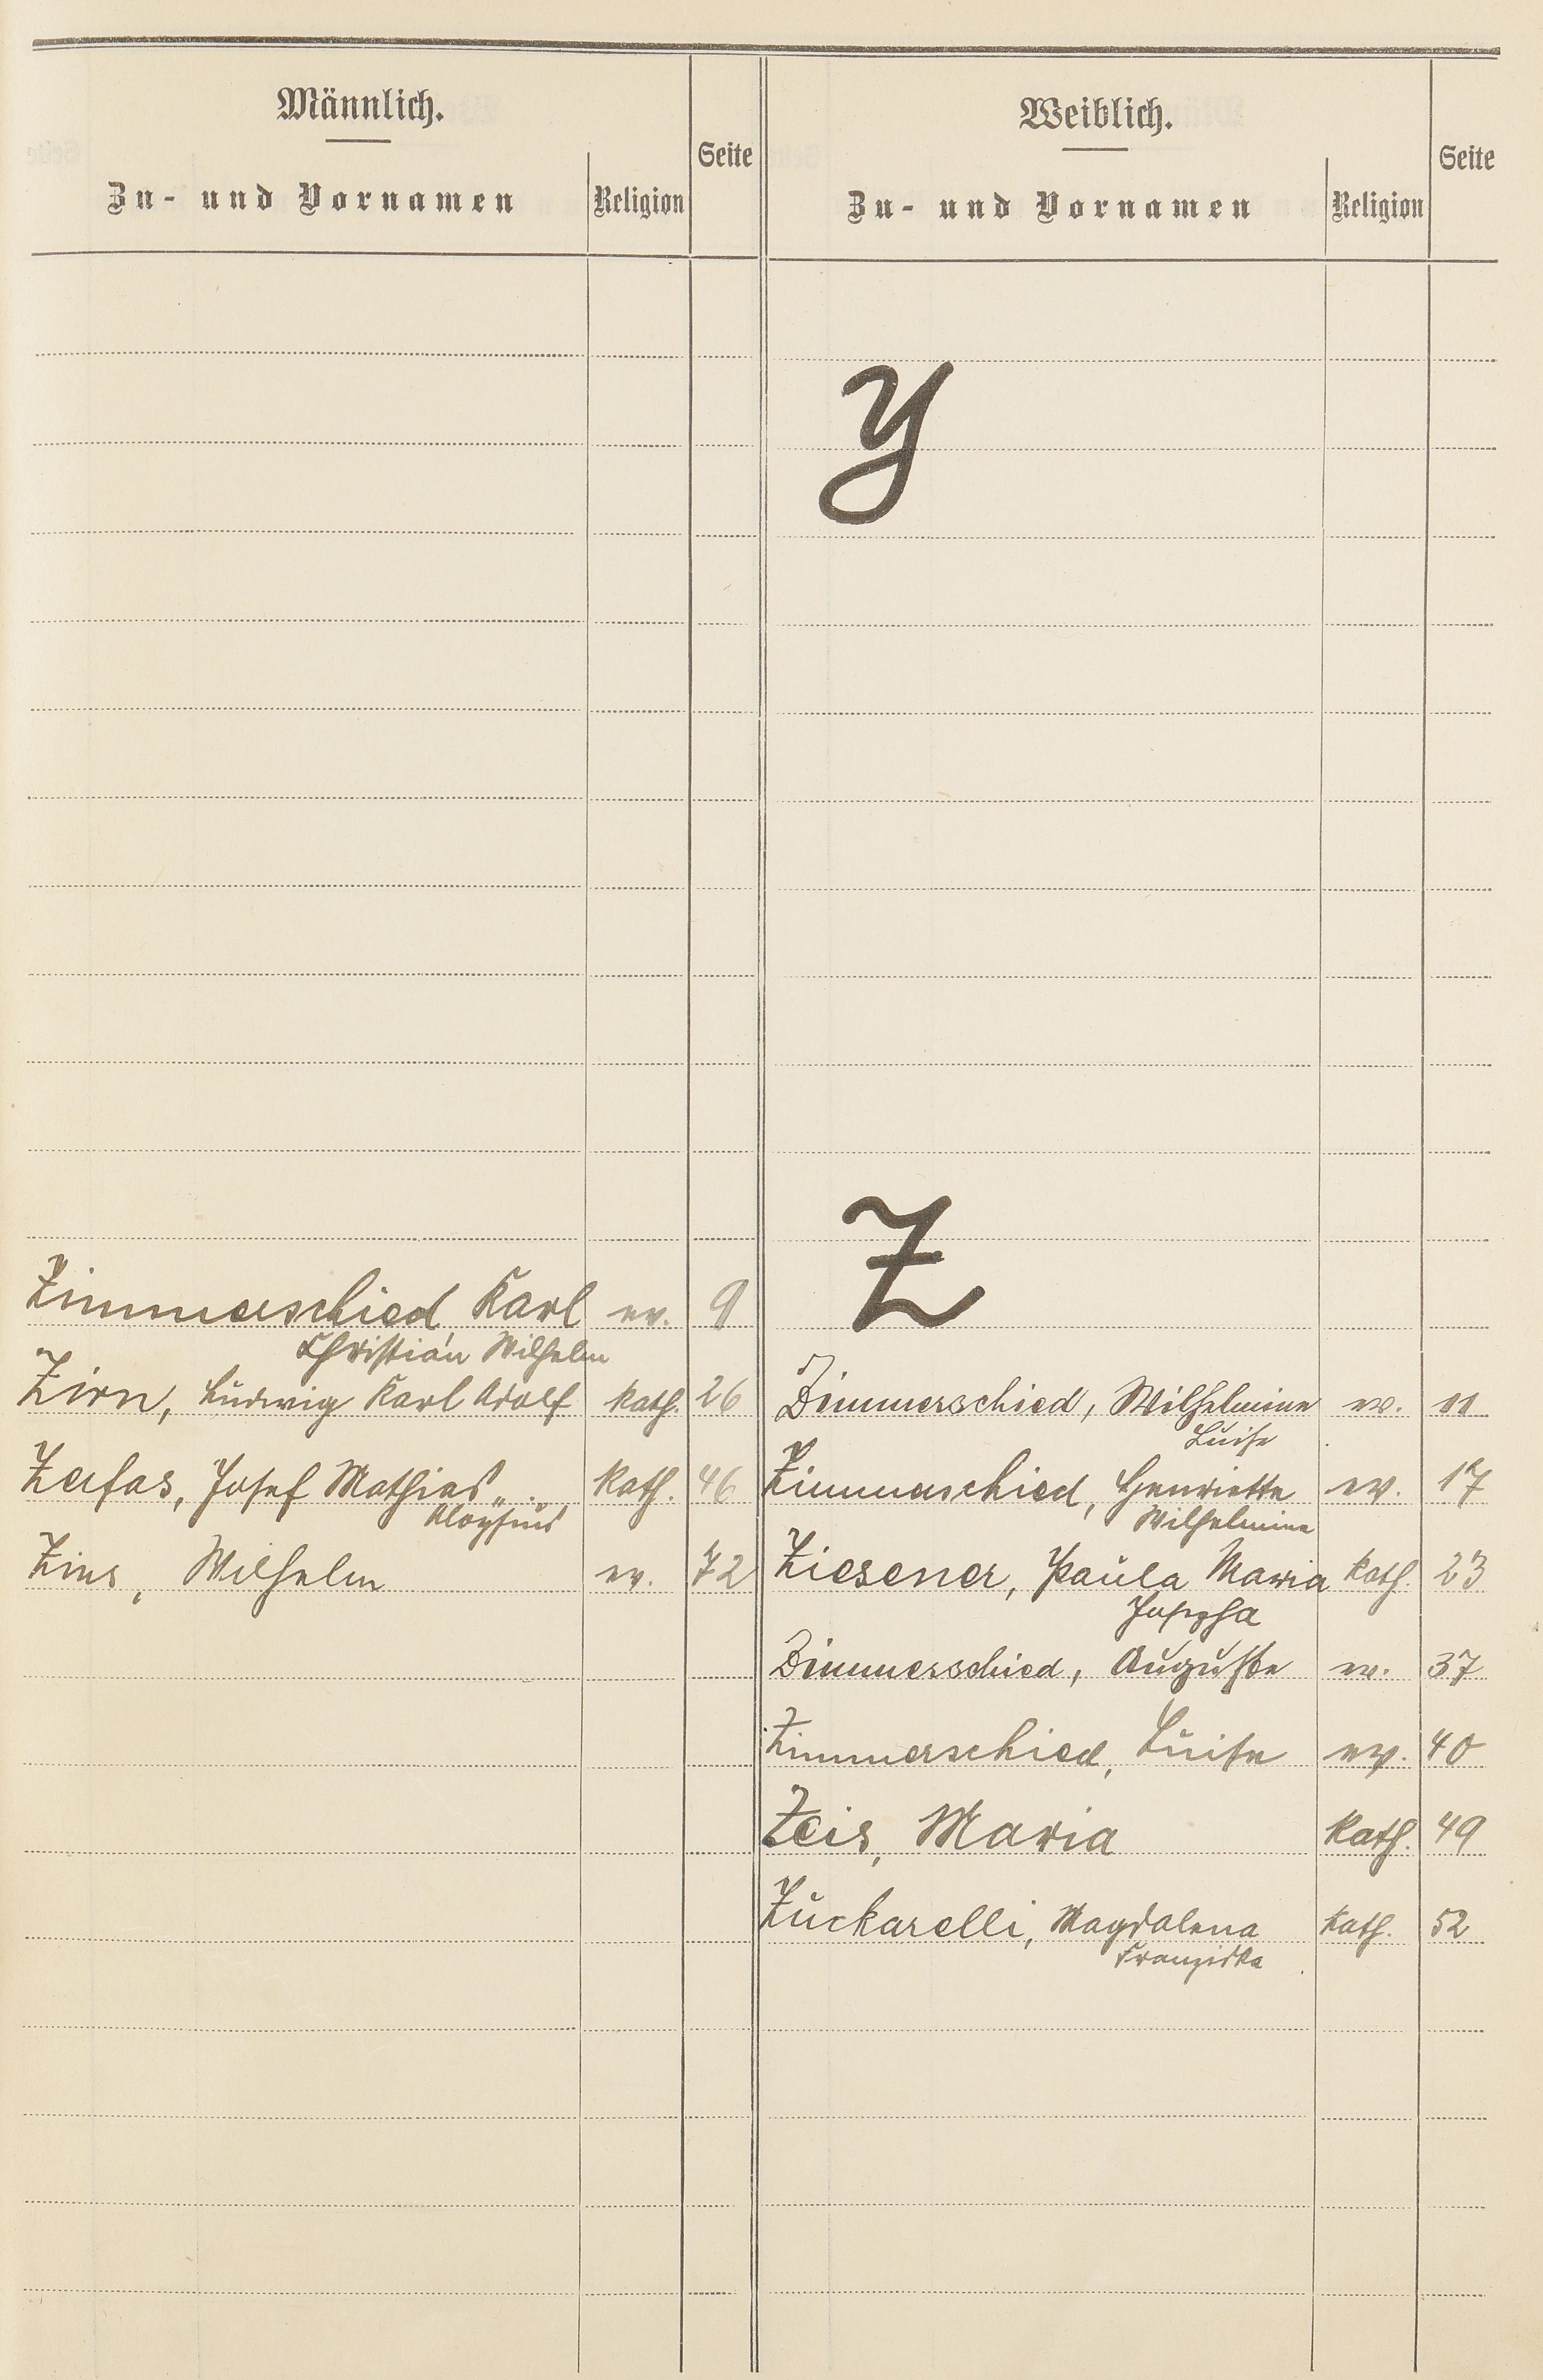 Männlich.
Zu- und Vornamen
Religion
Seite
Zimmerschied, Karl ev. 9
Christian Wilhelm
Zirn, Ludwig Karl Adolf kath. 26
Zerfas, Josef Mathias kath. 46
Aloysius
Zins, Wilhelm ev. 72
Weiblich.
Zu- und Vornamen
Religion
Seite
Y
Z
Zimmerschied, Wilhelmine ev. 11
Luise
Zimmerschied, Henriette ev. 17
Wilhelmine
Ziesener, Paula Maria kath. 23
Josepha
Zimmerschied, Auguste ev. 37
Zimmerschied, Luise ev. 40
Zeis, Maria kath. 49
Zuckarelli, Magdalena kath. 52
Franziska